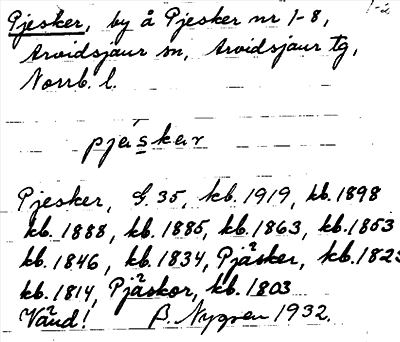 1-2
Pjesker, by å Pjesker nr 1-8,
Arvidsjaur sn, Arvidsjaur tg,
Norrb. l.
pjäskar
Pjesker, G. 35, kb. 1919, kb. 1898
kb. 1888, kb. 1885, kb. 1863, kb. 1853
kb. 1846, kb. 1834, Pjäsker, kb. 1825
kb. 1814, Pjäskor, kb. 1803
Vänd! B. Nygren 1932.